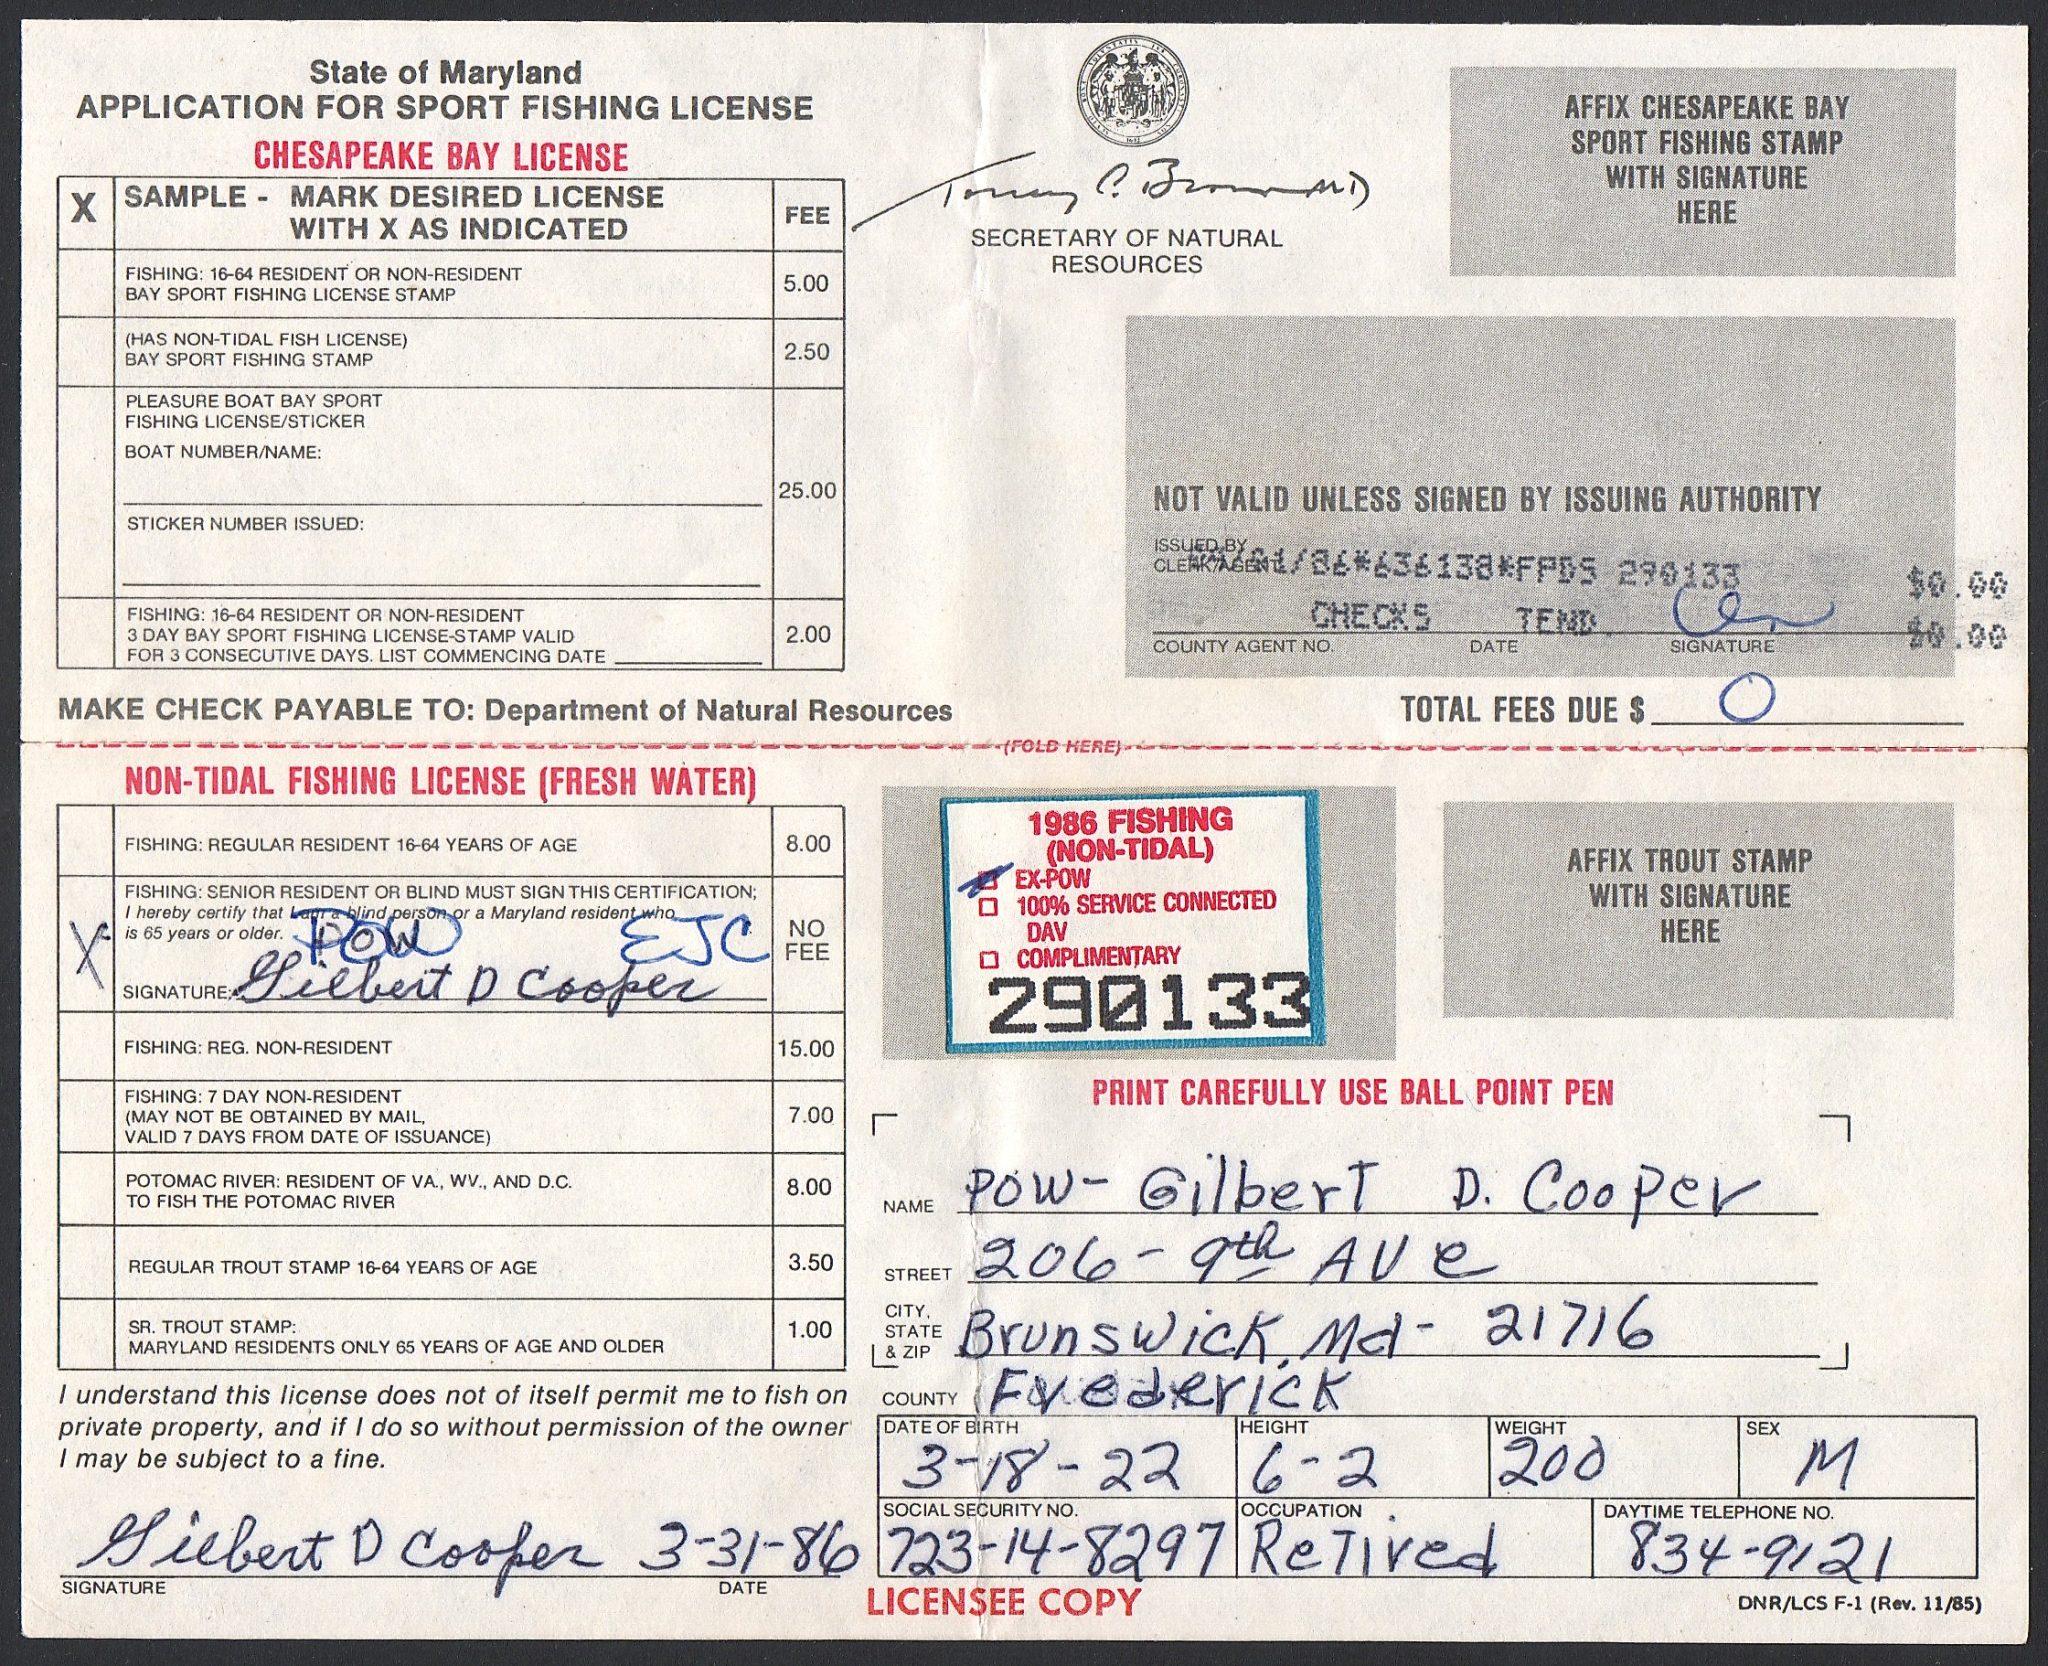 State of Maryland
APPLICATION FOR SPORT FISHING LICENSE
CHESAPEAKE BAY LICENSE
X SAMPLE - MARK DESIRED LICENSE FEE
WITH X AS INDICATED
FISHING: 16-64 RESIDENT OR NON-RESIDENT 5.00
BAY SPORT FISHING LICENSE STAMP
(HAS NON-TIDAL FISH LICENSE) 2.50
BAY SPORT FISHING STAMP
PLEASURE BOAT BAY SPORT
FISHING LICENSE/STICKER
BOAT NUMBER/NAME:
25.00
STICKER NUMBER ISSUED:
FISHING: 16-64 RESIDENT OR NON-RESIDENT
3 DAY BAY SPORT FISHING LICENSE-STAMP VALID 2.00
FOR 3 CONSECUTIVE DAYS. LIST COMMENCING DATE
MAKE CHECK PAYABLE TO: Department of Natural Resources
SECRETARY OF NATURAL
RESOURCES
AFFIX CHESAPEAKE BAY
SPORT FISHING STAMP
WITH SIGNATURE
HERE
NOT VALID UNLESS SIGNED BY ISSUING AUTHORITY
ISSUED BY
CLERK/AGENT /86*636138*FPDS 290133 $0.00
CHECKS TEND. $0.00
COUNTY AGENT NO. DATE SIGNATURE
TOTAL FEES DUE $ 0
(FOLD HERE)
NON-TIDAL FISHING LICENSE (FRESH WATER)
FISHING: REGULAR RESIDENT 16-64 YEARS OF AGE 8.00
FISHING: SENIOR RESIDENT OR BLIND MUST SIGN THIS CERTIFICATION;
I hereby certify that I am a blind person or a Maryland resident who
is 65 years or older. POW EJC NO FEE
X SIGNATURE: Gilbert D Cooper
FISHING: REG. NON-RESIDENT 15.00
FISHING: 7 DAY NON-RESIDENT
(MAY NOT BE OBTAINED BY MAIL, 7.00
VALID 7 DAYS FROM DATE OF ISSUANCE)
POTOMAC RIVER: RESIDENT OF VA., WV., AND D.C. 8.00
TO FISH THE POTOMAC RIVER
REGULAR TROUT STAMP 16-64 YEARS OF AGE 3.50
SR. TROUT STAMP: 1.00
MARYLAND RESIDENTS ONLY 65 YEARS OF AGE AND OLDER
I understand this license does not of itself permit me to fish on
private property, and if I do so without permission of the owner
I may be subject to a fine.
Gilbert D Cooper 3-31-86
SIGNATURE DATE
1986 FISHING
(NON-TIDAL)
EX-POW
100% SERVICE CONNECTED
DAV
COMPLIMENTARY
290133
AFFIX TROUT STAMP
WITH SIGNATURE
HERE
PRINT CAREFULLY USE BALL POINT PEN
NAME POW- Gilbert D. Cooper
STREET 206 - 9th Ave
CITY, STATE & ZIP Brunswick, Md- 21716
COUNTY Frederick
DATE OF BIRTH HEIGHT WEIGHT SEX
3-18-22 6-2 200 M
SOCIAL SECURITY NO. OCCUPATION DAYTIME TELEPHONE NO.
723-14-8297 Retired 834-9121
LICENSEE COPY DNR/LCS F-1 (Rev. 11/85)